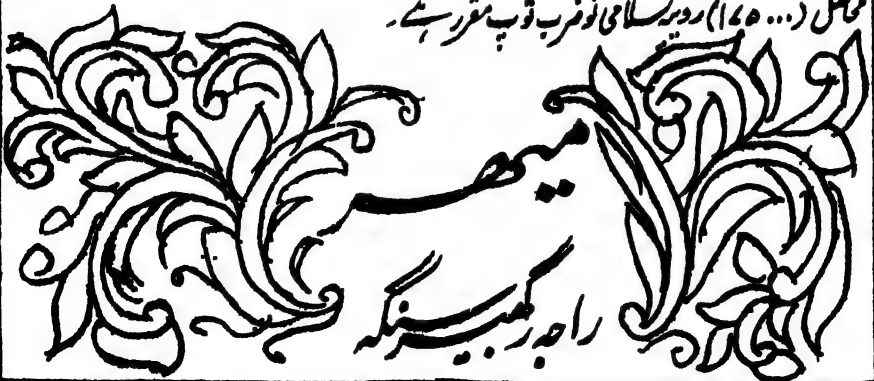 محاصل (۱۷۵۰۰۰) روپیہ سلامی نو ضرب توپ مقرر ہے۔
میہر
راجہ رگھبیر سنگھ